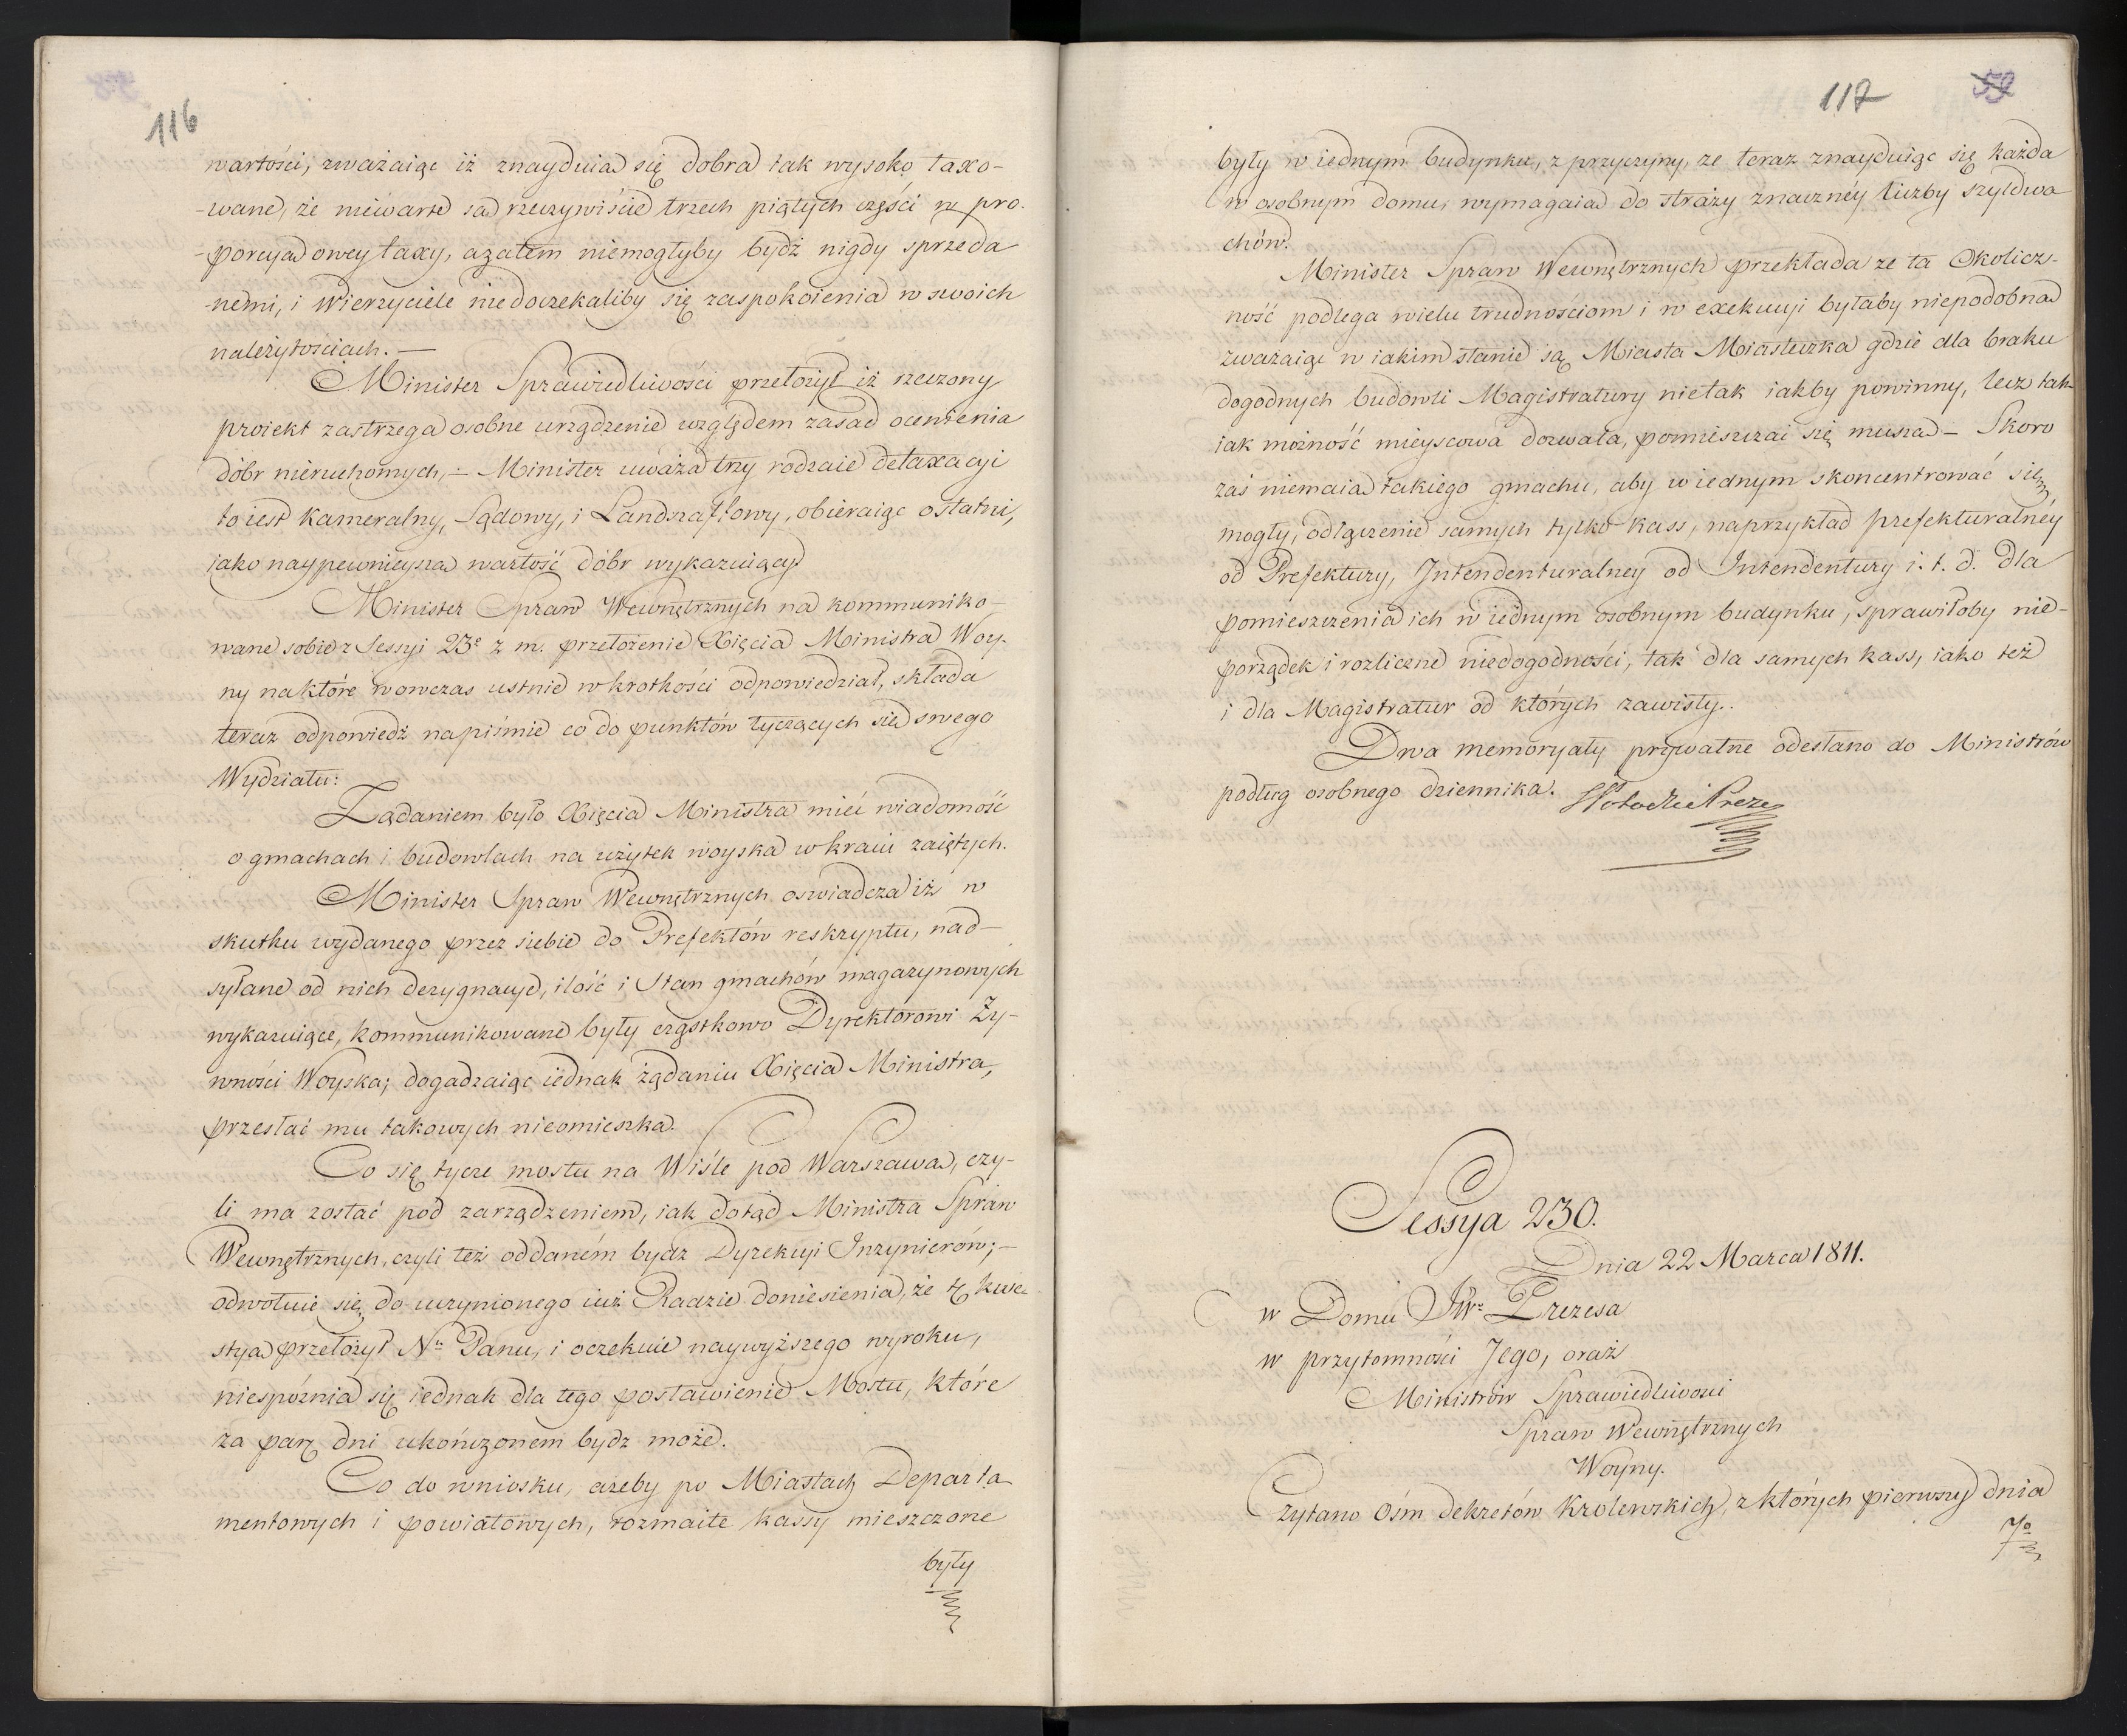 116
wartości, zważaiąc iż znayduią się dobra tak wysoko taxo-
-wane, że niewarte są rzeczywiście trzech piątych części w pro-
-porcyą owey taxy, a zatem niemogłyby bydź nigdy sprzeda
-nemi, i Wierzyciele niedoczekaliby się zaspokoienia w swoich
należytościach. —
Minister Sprawiedliwości przełożył iż rzeczony
proiekt zastrzega osobne urządzenie względem zasad ocenienia
dóbr nieruchomych, — Minister uważa trzy rodzaie detaxacyi
to iest kameralny, Sądowy, i Landszaftowy, obieraiąc ostatni,
iako naypewnieyszą wartość dóbr wykazuiący.
Minister Spraw Wewnętrznych na kommuniko-
wane sobie z Sessyi 23e z m. przełożenie Xięcia Ministra Woy-
ny na które wowczas ustnie w krotkości odpowiedział, składa
teraz odpowiedź na piśmie co do punktów tyczących się swego
Wydziału:
Żądaniem było Xięcia Ministra mieć wiadomość
o gmachach i budowlach na użytek woyska w kraiu zaiętych.
Minister Spraw Wewnętrznych oswiadcza iż w
skutku wydanego przez siebie do Prefektów reskryptu, nad-
syłane od nich dezygnacye, ilość i Stan gmachów magazynowych
wykazuiące, kommunikowane były cząstkowo Dyrektorowi Ży-
wności Woyska; dogadzaiąc iednak żądaniu Xięcia Ministra,
przesłać mu takowych nieomieszka.
Co się tycze mostu na Wiśle pod Warszawą, czy-
li ma zostać pod zarządzeniem, iak dotąd Ministra Spraw
Wewnętrznych, czyli też oddaném bydz Dyrekcyi Inzynierów; —
odwołuie się do uczynionego iuż Radzie doniesienia, że tę kwe-
styą przełożył Nu Panu, i oczekuie naywyższego wyroku,
niespóznia się iednak dla tego postawienie Mostu, które
za parę dni ukończonem bydz może.
Co do wniosku, ażeby po Miastach Departa
mentowych i powiatowych, rozmaite kassy mieszczone
były
117 59
były w iednym budynku, z przyczyny, ze teraz znayduiąc się każda
w osobnym domu, wymagaią do straży znaczney liczby szyldwa
chów.
Minister Spraw Wewnętrznych przekłada ze ta Okolicz-
ność podlega wielu trudnościom i w exekucyi byłaby niepodobną
zważaiąc w iakim stanie są Miasta Miasteczka gdzie dla braku
dogodnych budowli Magistratury nietak iakby powinny, lecz tak
iak możność mieyscowa dozwala, pomieszczać się muszą — Skoro
zaś niemaią takiego gmachu, aby w iednym skoncentrować się
mogły, odłączenie samych tylko kass, naprzykład prefekturalnéy
od Prefektury, Intendenturalney od Intendentury i. t. d. dla
pomieszczenia ich w iednym osobnym budynku, sprawiłoby nie-
porządek i rozliczne niedogodności, tak dla samych kass, iako też
i dla Magistratur od których zawisły.
Dwa memoryały prywatne odesłano do Ministrów
podług osobnego dziennika.
Sessya 230.
Dnia 22 Marca 1811.
w Domu JWo Prezesa
w przytomności Jego, oraż
Ministrów Sprawiedliwości
Spraw Wewnętrznych
Woyny.
Czytano Ośm dekretów Krolewskich, z których pierwszy dnia
7o